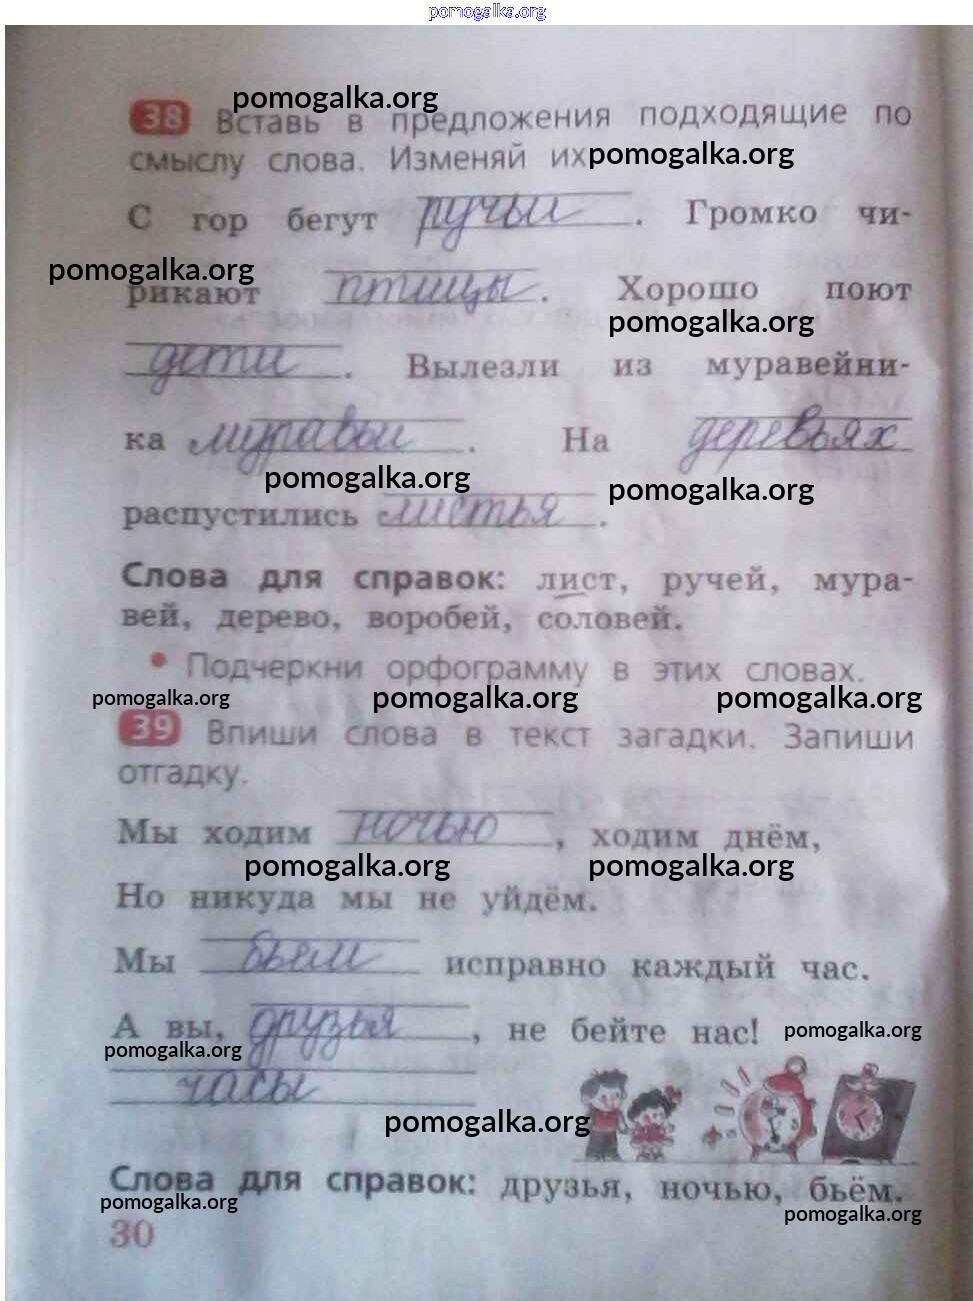 pomogalka.org
pomogalka.org
38 Вставь в предложения подходящие по
смыслу слова. Изменяй их pomogalka.org
С гор бегут ручьи . Громко чи-
pomogalka.org
рикают птицы . Хорошо поют
pomogalka.org
дети . Вылезли из муравейни-
ка муравьи . На деревьях
pomogalka.org pomogalka.org
распустились листья .
Слова для справок: лист, ручей, мура-
вей, дерево, воробей, соловей.
• Подчеркни орфограмму в этих словах.
pomogalka.org pomogalka.org pomogalka.org
39 Впиши слова в текст загадки. Запиши
отгадку.
Мы ходим ночью , ходим днём,
pomogalka.org pomogalka.org
Но никуда мы не уйдём.
Мы бьем исправно каждый час.
А вы, друзья , не бейте нас! pomogalka.org
pomogalka.org
часы
pomogalka.org
Слова для справок: друзья, ночью, бьём.
pomogalka.org pomogalka.org
30